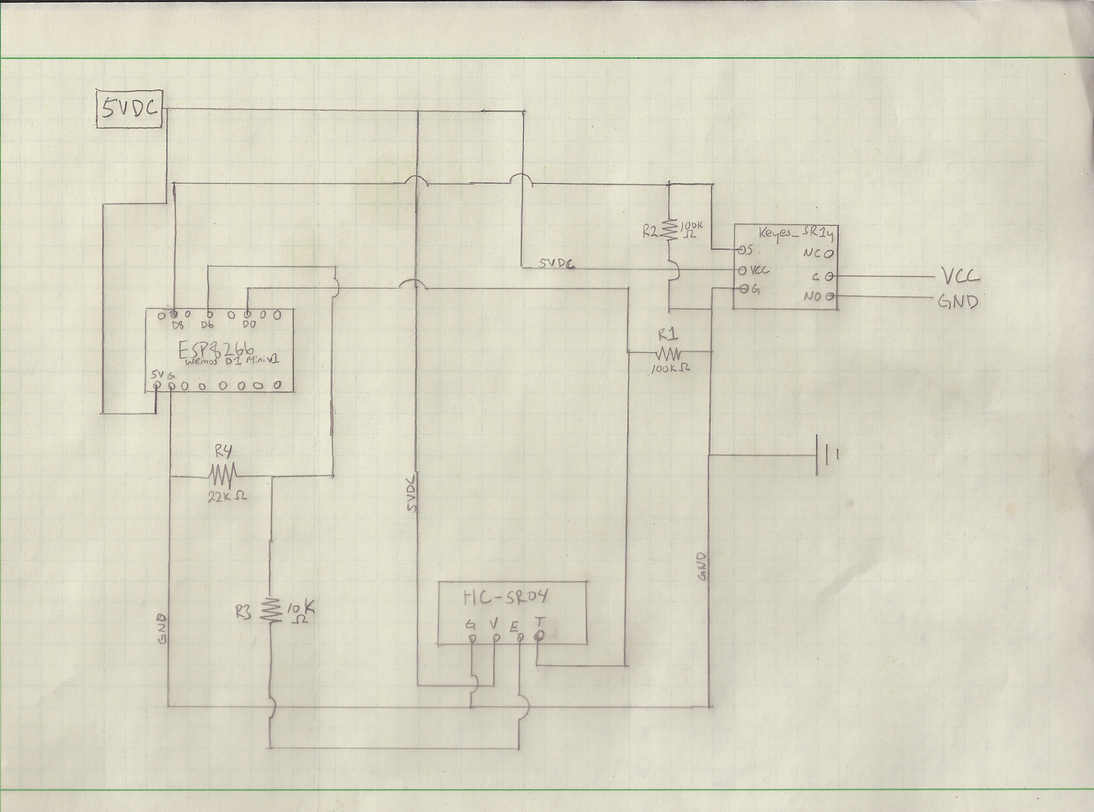 5VDC
R2
100K
Ω
Keyes_SR1y
S
NC
VCC
C
G
NO
VCC
GND
5VDC
D8
D6
D0
ESP8266
Wemos D1 Mini v1
5V G
R1
100KΩ
R4
22KΩ
5VDC
GND
GND
R3
10K
Ω
HC-SR04
G V E T